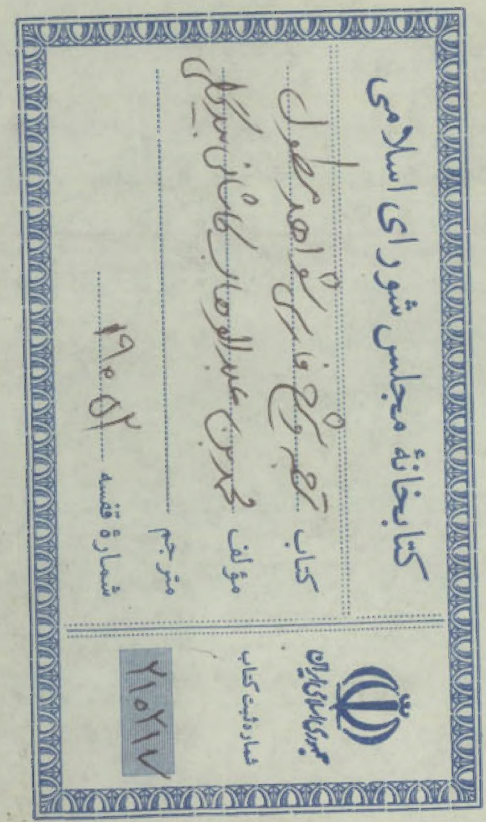 کتابخانهٔ مجلس شورای اسلامی
کتاب ترجمه و شرح فارسی شواهد مطول
مؤلف محمد بن عبدالوهاب کاشانی
مترجم
شمارهٔ قفسه ۱۹۰۵۲
جمهوری اسلامی ایران
شماره ثبت کتاب
۲۱۰۲۱۷